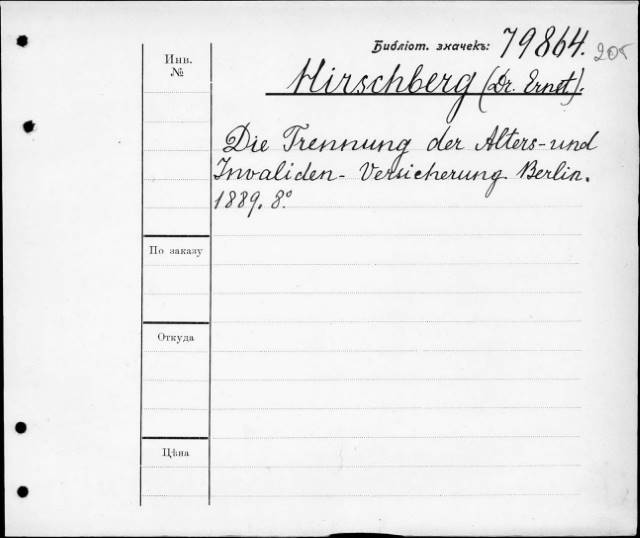 Библіот. значекъ: 79864. 205
Инв. №
Hirschberg (Dr. Ernst).
Die Trennung der Alters- und
Invaliden- Versicherung Berlin.
1889. 8°.
По заказу
Откуда
Цѣна